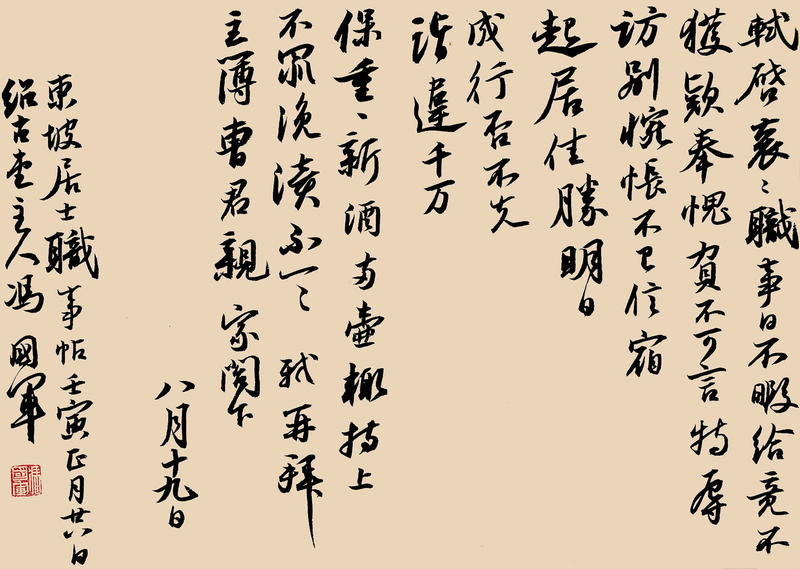 軾啓衰〻職事日不暇給竟不
獲款奉愧負不可言特辱
訪别惋悵不已信宿
起居佳勝明日
成行否不克
詣違千万
保重〻新酒両壺輙持上
不罪浼瀆不一〻軾再拜
主簿曹君親家閤下
八月十九日
東坡居士職事帖壬寅正月廿八日
紹古堂主人馮國軍